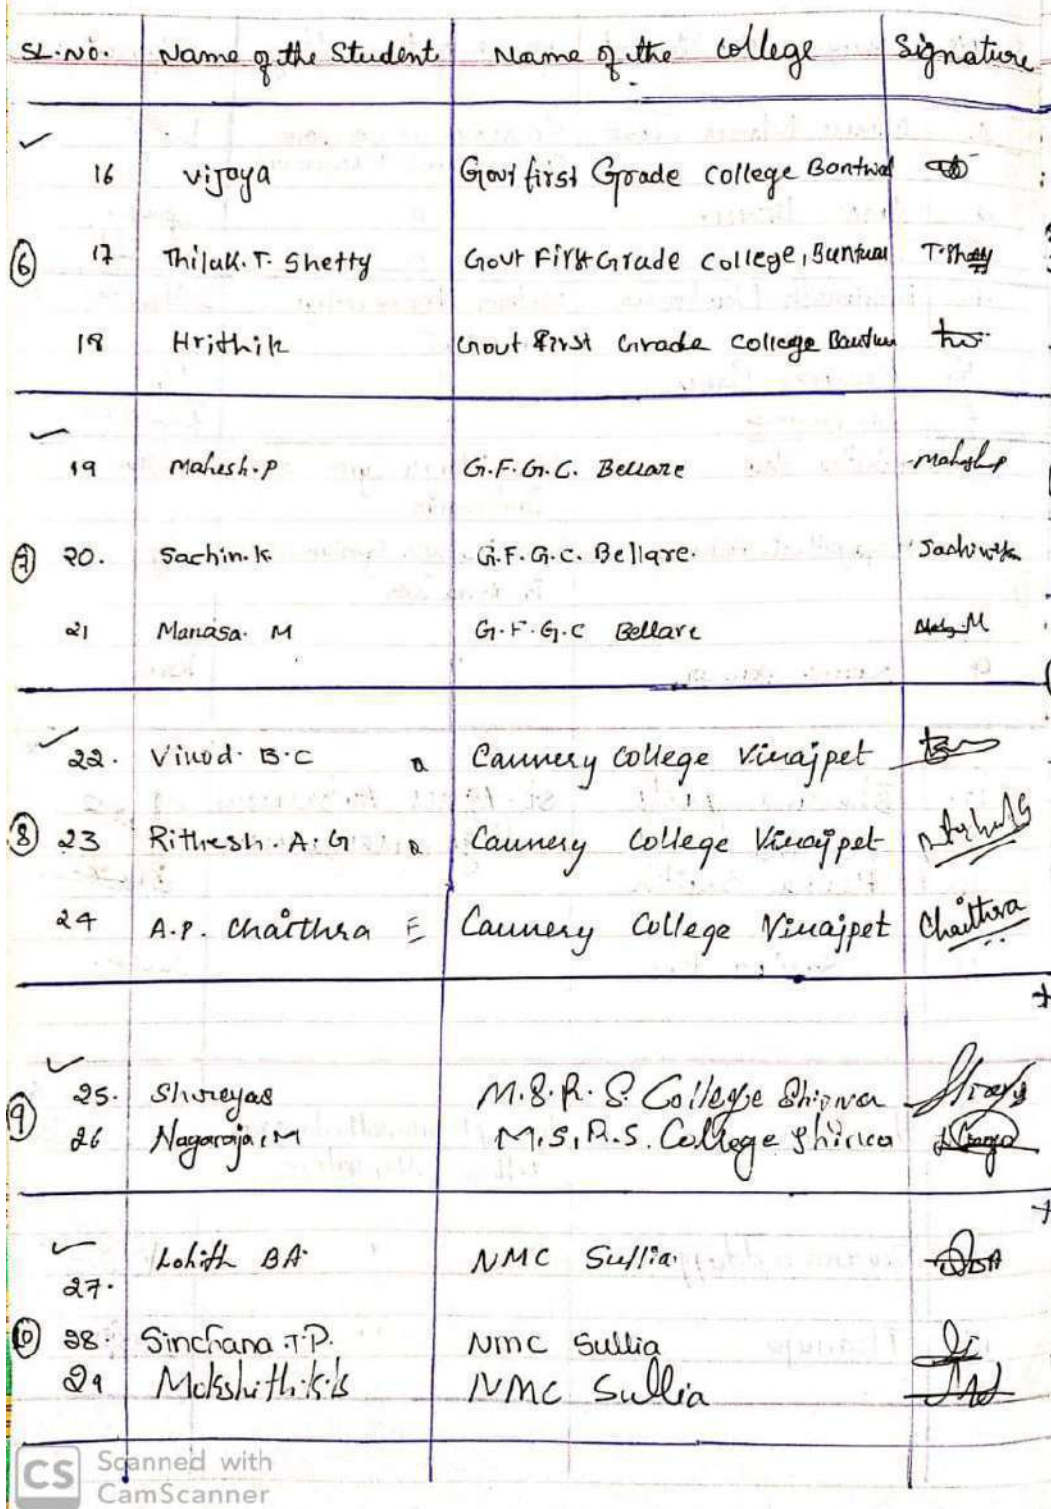 SL.No. Name of the Student Name of the College Signature
16 Vijaya Govt first Grade College Bantwal
6 17 Thilak.T. Shetty Govt First Grade College, Bantwal T.Shetty
18 Hrithik Govt First Grade College Bantwal
19 Mahesh.P G.F.G.C. Bellare Mahesh P
7 20. Sachin.K G.F.G.C. Bellare. Sachin.K
21 Manasa. M G.F.G.C Bellare M
22. Vinod. B.C Caunery College Virajpet
8 23 Rithesh.A.G Caunery College Virajpet
24 A.P. Chaithra Caunery College Virajpet Chaithra
9 25. Shreyas M.S.R.S. College Shirva Shreyas
26 Nagaraja.M M.S.R.S. College Shirva
27. Lohith BA. NMC Sullia.
10 28. Sinchana.T.P. NMC Sullia
29 Mokshith.K.S NMC Sullia
CS Scanned with
CamScanner